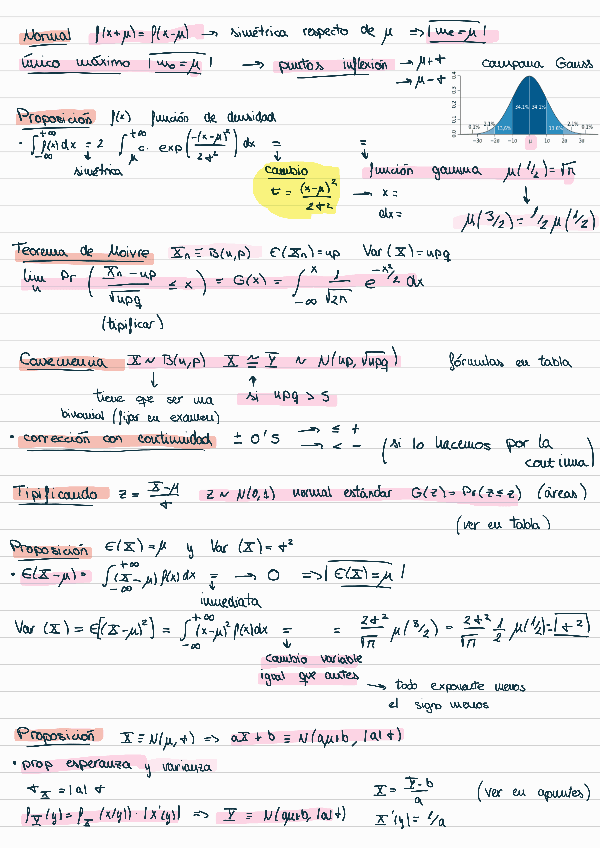 Normal f(x+μ) = f(x-μ) → simétrica respecto de μ ⇒ | me = μ !
único máximo | mo = μ ! → puntos inflexión → μ+σ → μ-σ campana Gauss
0.4 0.3 0.2 0.1 0.0
34,1% 34,1%
0,1% 2,1% 13,6% 13,6% 2,1% 0,1%
-3σ -2σ -1σ μ 1σ 2σ 3σ
Proposición f(x) función de densidad
· ∫_{-∞}^{+∞} f(x) dx = 2 ∫_{μ}^{+∞} c · exp(-(x-μ)²/2σ²) dx = =
simétrica
cambio t = (x-μ)²/2σ² → x = dx =
función gamma μ(1/2) = √π
μ(3/2) = 1/2 μ(1/2)
Teorema de Moivre X_n ≡ B(n,p) E(X_n) = np Var(X) = npq
lim_n Pr( (X_n - np)/√npq ≤ x ) = G(x) = ∫_{-∞}^{x} 1/√2π e^{-x²/2} dx
(tipificar)
Consecuencia X ~ B(n,p) X ≅ Y ~ N(np, √npq) fórmulas en tabla
tiene que ser una si npq > 5
binomial (fijar en examen)
· corrección con continuidad ± 0'5 → ≤ + → < - (si lo hacemos por la
continua)
Tipificando z = (X-μ)/σ z ~ N(0,1) normal estándar G(z) = Pr(Z≤z) (áreas)
(ver en tabla)
Proposición E(X) = μ y Var(X) = σ²
· E(X-μ) = ∫_{-∞}^{+∞} (x-μ) f(x) dx = → 0 ⇒ | E(X) = μ !
inmediata
Var(X) = E[(X-μ)²] = ∫_{-∞}^{+∞} (x-μ)² f(x) dx = = 2σ²/√π μ(3/2) = 2σ²/√π 1/2 μ(1/2) = |σ²|
cambio variable
igual que antes → todo exponente menos
el signo menos
Proposición X ≡ N(μ,σ) ⇒ aX + b ≡ N(aμ+b, |a|σ)
· prop esperanza y varianza
σ_X = |a| σ X = (Y-b)/a (ver en apuntes)
f_Y(y) = f_X(x(y)) · |x'(y)| ⇒ Y ≡ N(aμ+b, |a|σ) X'(y) = 1/a